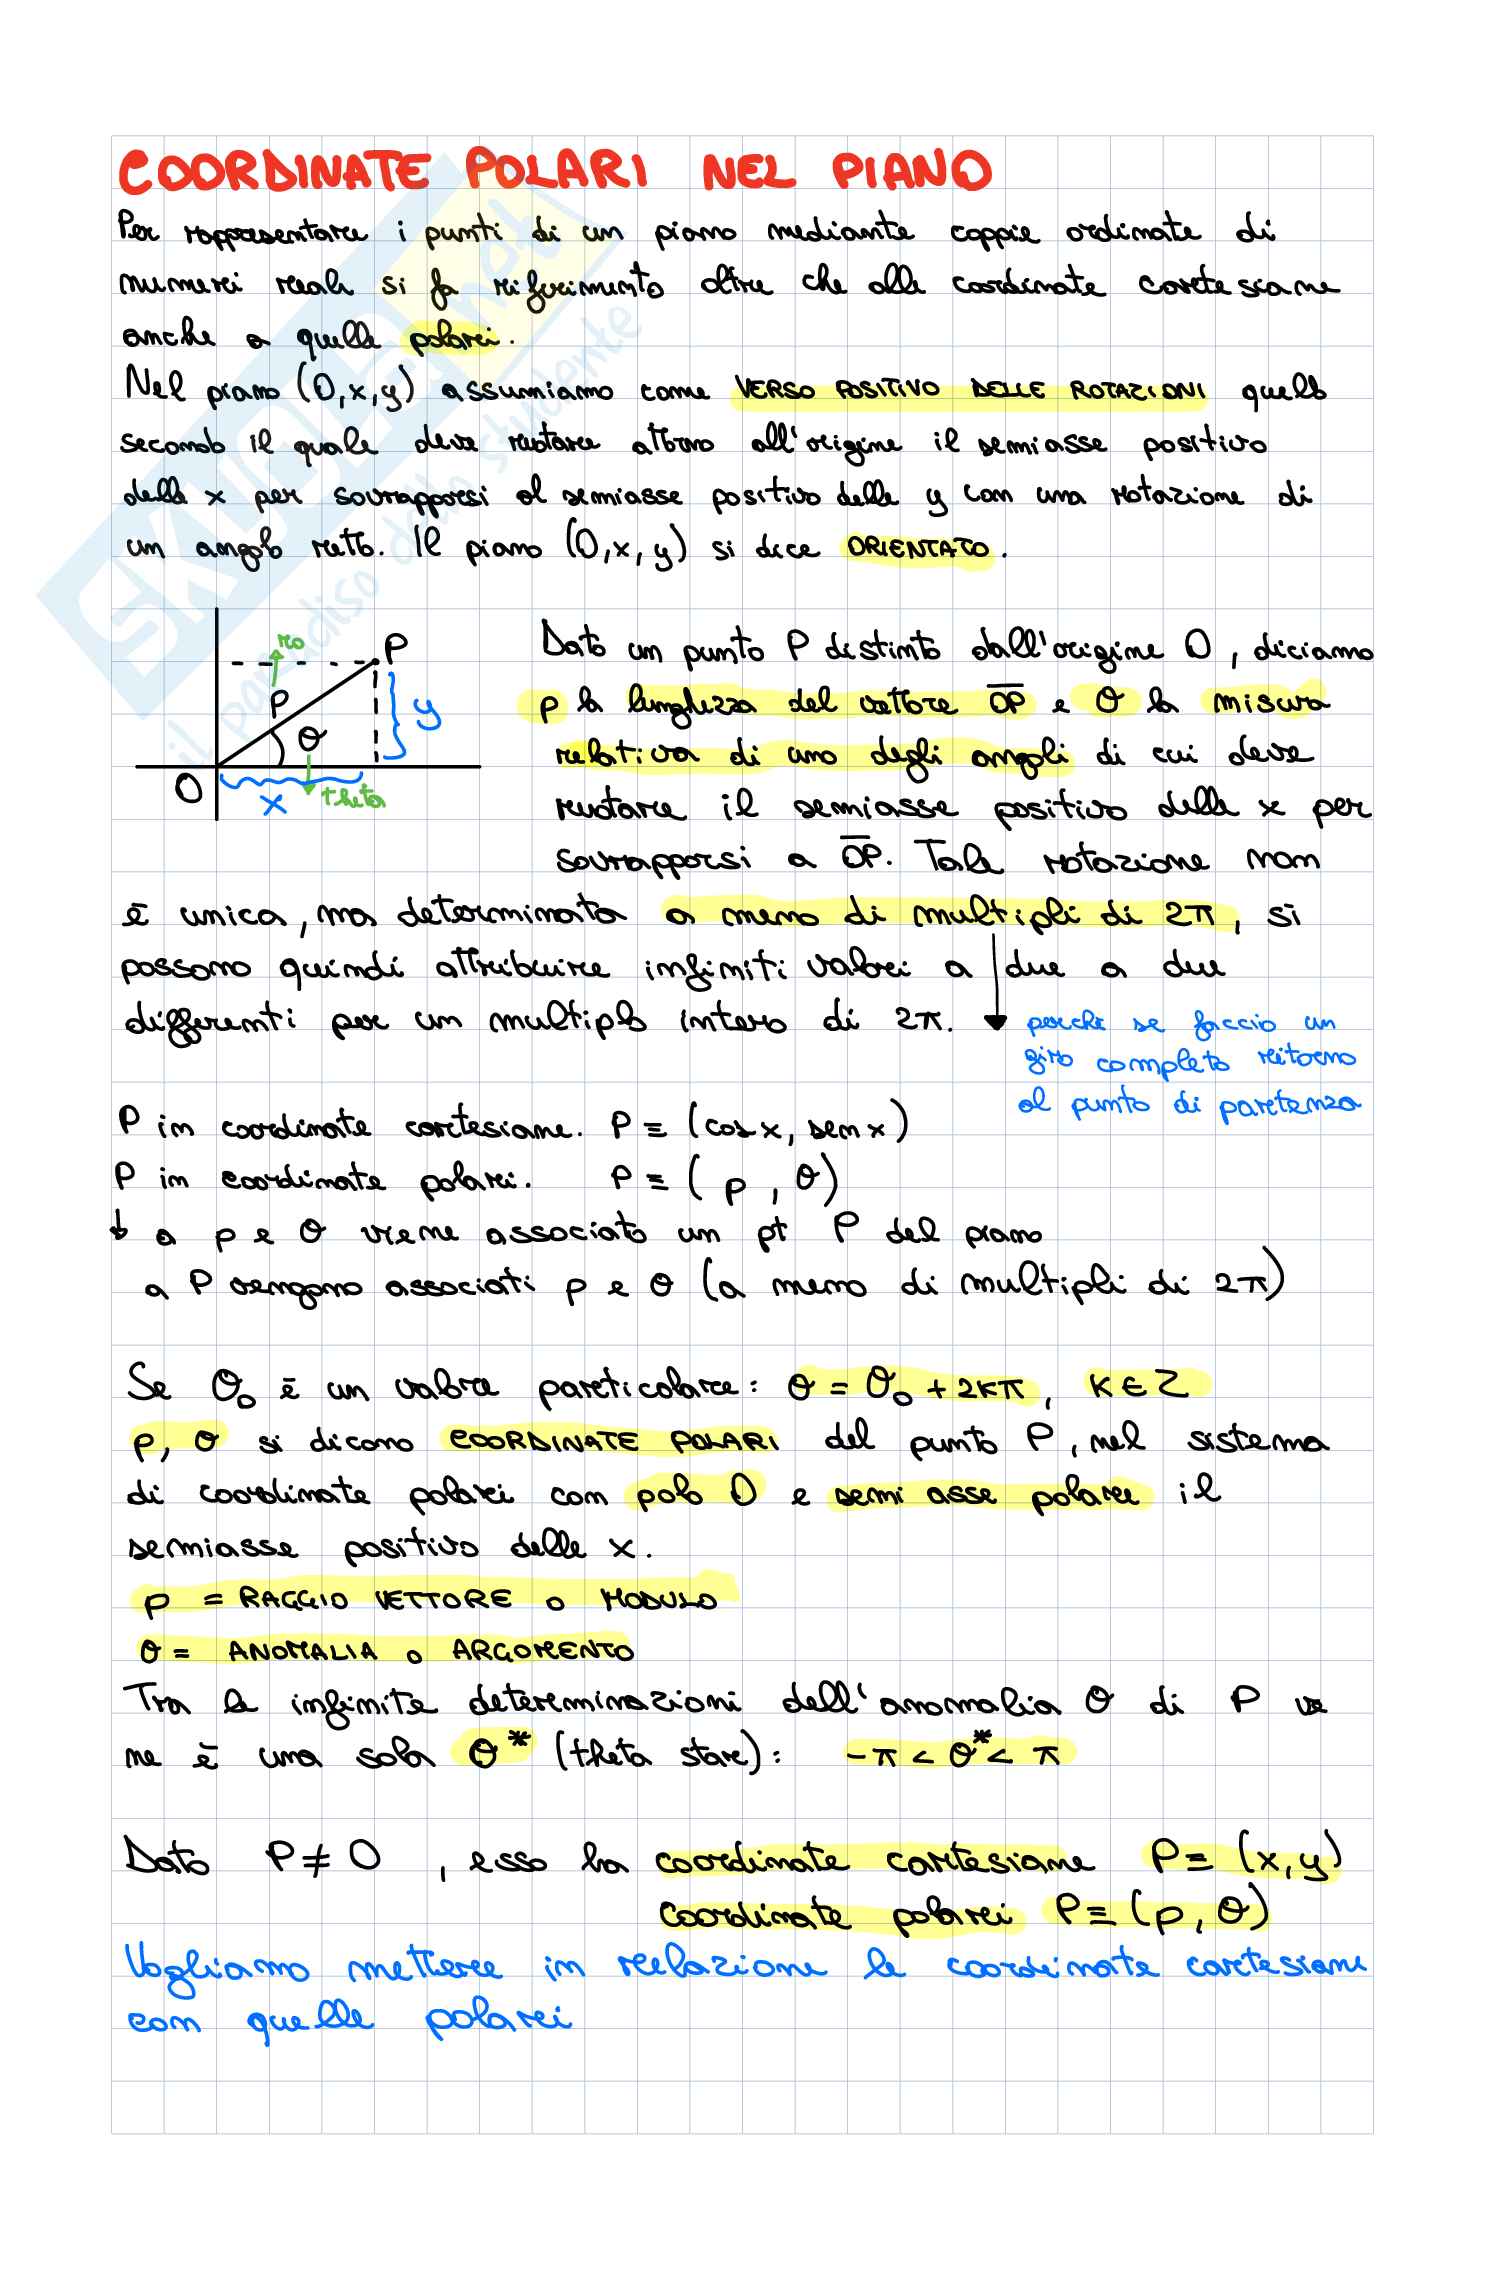 COORDINATE POLARI NEL PIANO
Per rappresentare i punti di un piano mediante coppie ordinate di
numeri reali si fa riferimento oltre che alle coordinate cartesiane
anche a quelle polari.
Nel piano (O,x,y) assumiamo come VERSO POSITIVO DELLE ROTAZIONI quello
secondo il quale deve ruotare attorno all'origine il semiasse positivo
delle x per sovrapporsi al semiasse positivo delle y con una rotazione di
un angolo retto. Il piano (O,x,y) si dice ORIENTATO.
ro
P
ρ
θ
y
O
x
theta
Dato un punto P distinto dall'origine O, diciamo
ρ la lunghezza del vettore OP e θ la misura
relativa di uno degli angoli di cui deve
ruotare il semiasse positivo delle x per
sovrapporsi a OP. Tale rotazione non
è unica, ma determinata a meno di multipli di 2π, si
possono quindi attribuire infiniti valori a due a due
differenti per un multiplo intero di 2π.
perché se faccio un
giro completo ritorno
al punto di partenza
P in coordinate cartesiane. P ≡ (cos x, sen x)
P in coordinate polari. P ≡ (ρ, θ)
↓ a ρ e θ viene associato un pt P del piano
a P vengono associati ρ e θ (a meno di multipli di 2π)
Se θ₀ è un valore particolare: θ = θ₀ + 2kπ, K ∈ Z
ρ, θ si dicono COORDINATE POLARI del punto P, nel sistema
di coordinate polari con polo O e semi asse polare il
semiasse positivo delle x.
ρ = RAGGIO VETTORE o MODULO
θ = ANOMALIA o ARGOMENTO
Tra le infinite determinazioni dell'anomalia θ di P ve
ne è una sola θ* (theta star): -π < θ* < π
Dato P ≠ O , esso ha coordinate cartesiane P ≡ (x,y)
coordinate polari P ≡ (ρ, θ)
Vogliamo mettere in relazione le coordinate cartesiane
con quelle polari
SKUOLA.net
il paradiso dello studente